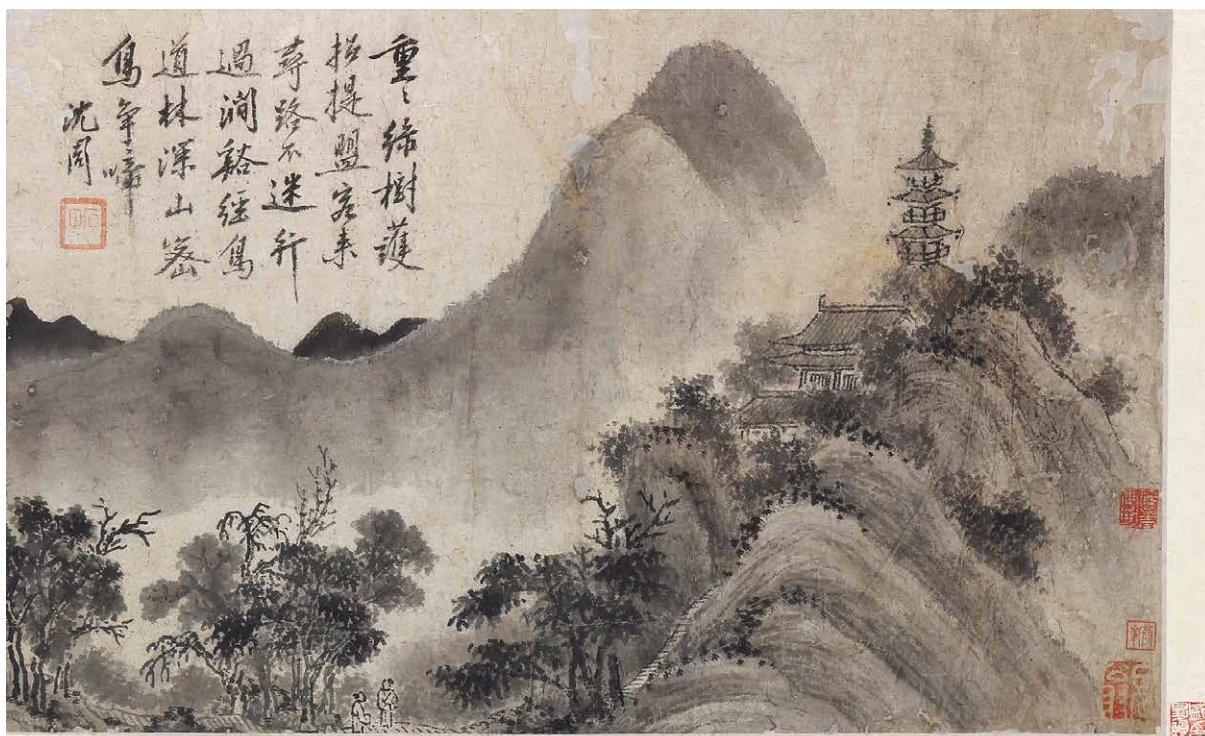 重〻綠樹護
招提盟客來
尋路不迷行
過澗谿經鳥
道林深山密
鳥爭啼
沈周
石田